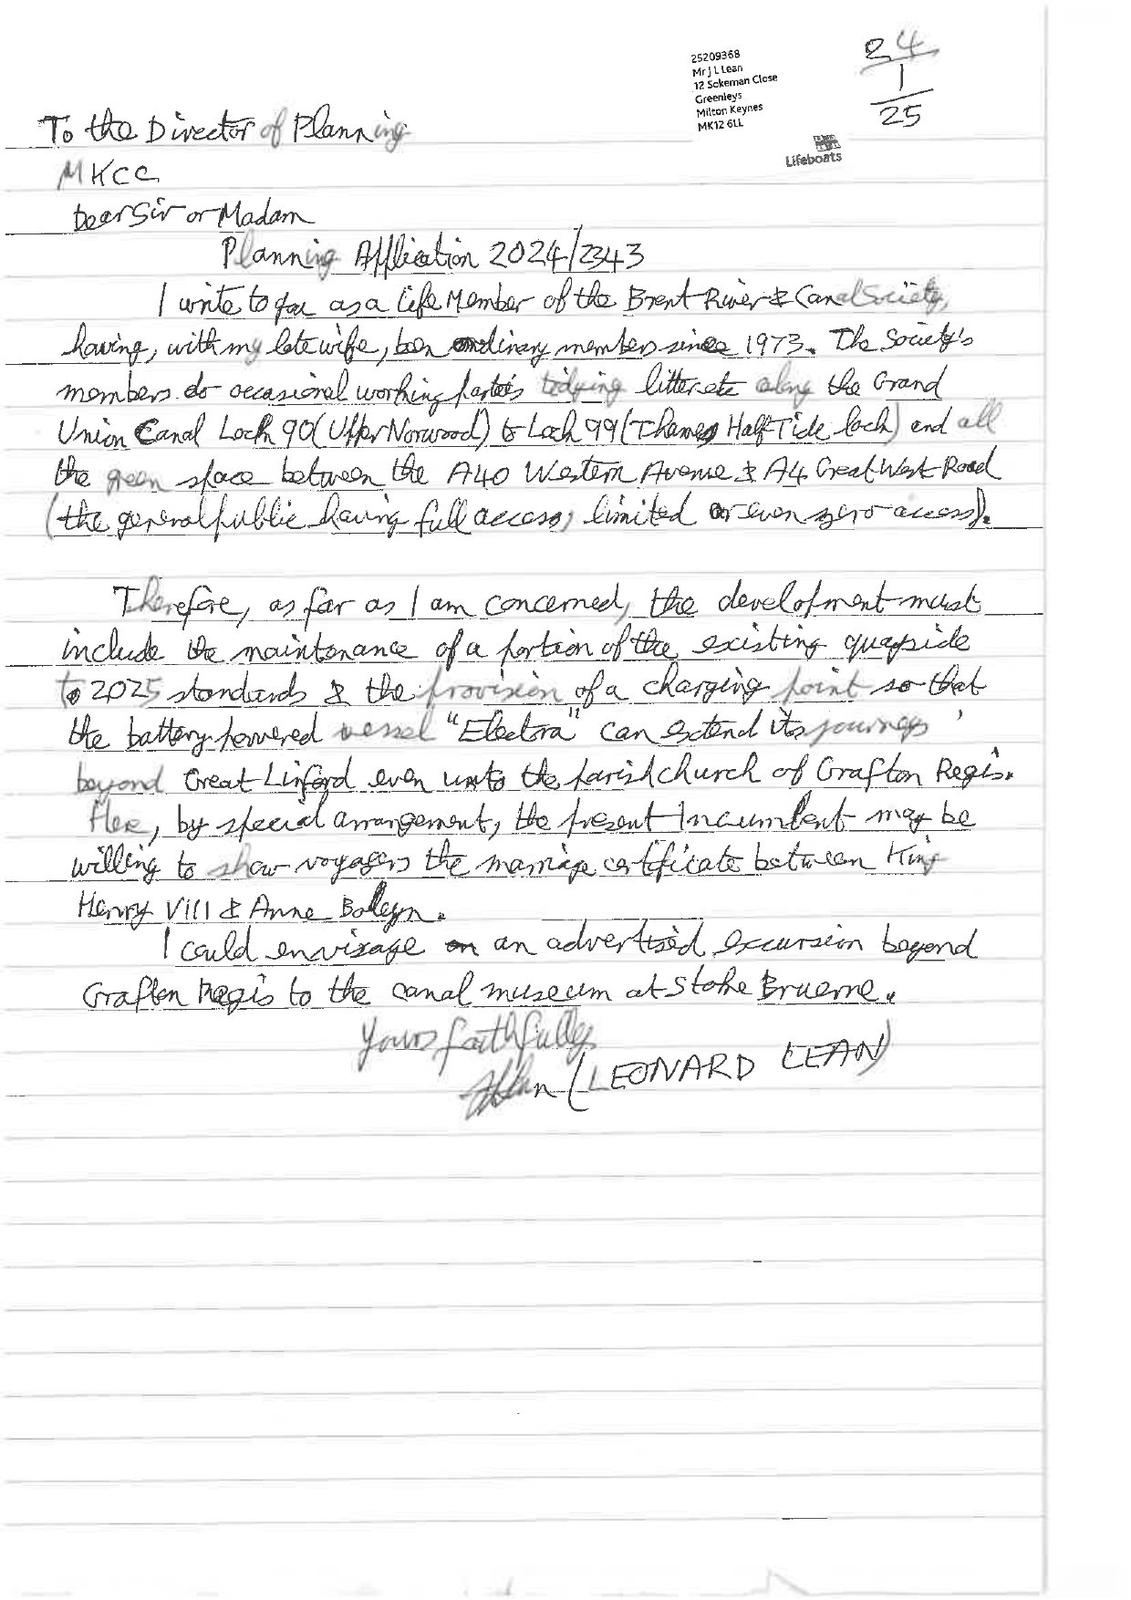 25209368
Mr J L Lean
12 Sokeman Close
Greenleys
Milton Keynes
MK12 6LL
Lifeboats
24
1
25
To the Director of Planning
MKCC
Dear Sir or Madam
Planning Application 2024/2343
I write to you as a Life Member of the Brent River & Canal Society,
having, with my late wife, been ordinary members since 1973. The Society's
members do occasional working parties tidying litter etc along the Grand
Union Canal Lock 90 (Upper Norwood) to Lock 99 (Thames Half Tide lock) and all
the green space between the A40 Western Avenue & A4 Great West Road
(the general public having full access, limited or even zero access).
Therefore, as far as I am concerned, the development must
include the maintenance of a portion of the existing quayside
to 2025 standards & the provision of a charging point so that
the battery powered vessel "Electra" can extend its journeys
beyond Great Linford even unto the parish church of Grafton Regis.
Here, by special arrangement, the present Incumbent may be
willing to show voyagers the marriage certificate between King
Henry VIII & Anne Boleyn.
I could envisage an advertised excursion beyond
Grafton Regis to the canal museum at Stoke Bruerne.
Yours faithfully
(LEONARD LEAN)